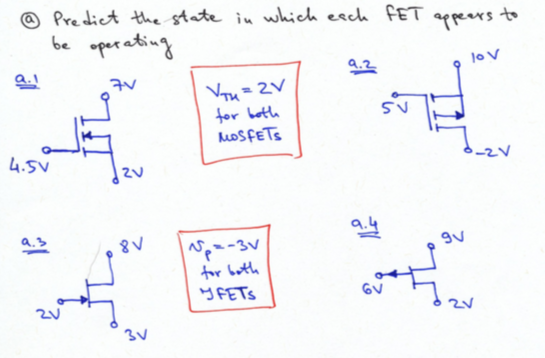 ⓐ Predict the state in which each FET appears to
be operating
a.1
7V
4.5V
2V
V_TH = 2V
for both
MOSFETs
a.2
10V
5V
-2V
a.3
8V
2V
3V
V_P = -3V
for both
JFETs
a.4
9V
6V
2V